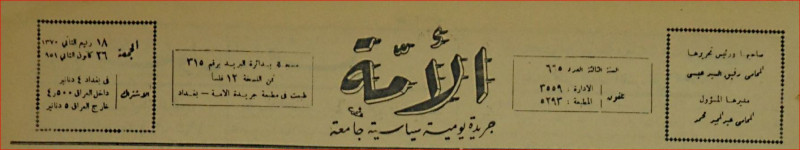 صاحبها ورئيس تحريرها
المحامي
مديرها المسؤول
المحامي عبد المجيد محمد
السنة الثالثة العدد ٦٦٥
تلفون
الادارة : ٣٥٥٩
المطبعة : ٥٢٩٣
الأمة
جريدة يومية سياسية جامعة
بدائرة البريد برقم ٣١٥
ثمن النسخة ١٢ فلساً
طبعت في مطبعة جريدة الامة - بغداد
الجمعة
١٨ ربيع الثاني ١٣٧٠
٢٦ كانون الثاني ٩٥١
الاشتراك
في بغداد ٤ دنانير
داخل العراق ٤٫٥٠٠
خارج العراق ٥ دنانير